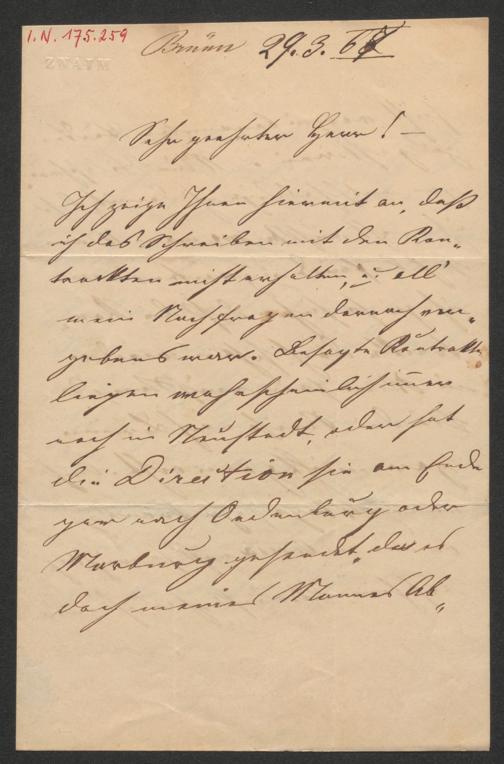 I.N. 175.259
Brünn 29.3. 67
ZNAIM
Sehr geehrter Herr! –
Ich zeige Ihnen hiermit an, daß
ich das Schreiben mit den Kon„
trackten nicht erhalten, u. all'
mein Nachfragen darnach ver„
gebens war. Besagte Kontrakte
liegen wahrscheinlich immer
noch in Neustadt, oder hat
die Direction sie am Ende
gar nach Oedenburg oder
Marburg gesendet, da es
doch meines Mannes Ab„